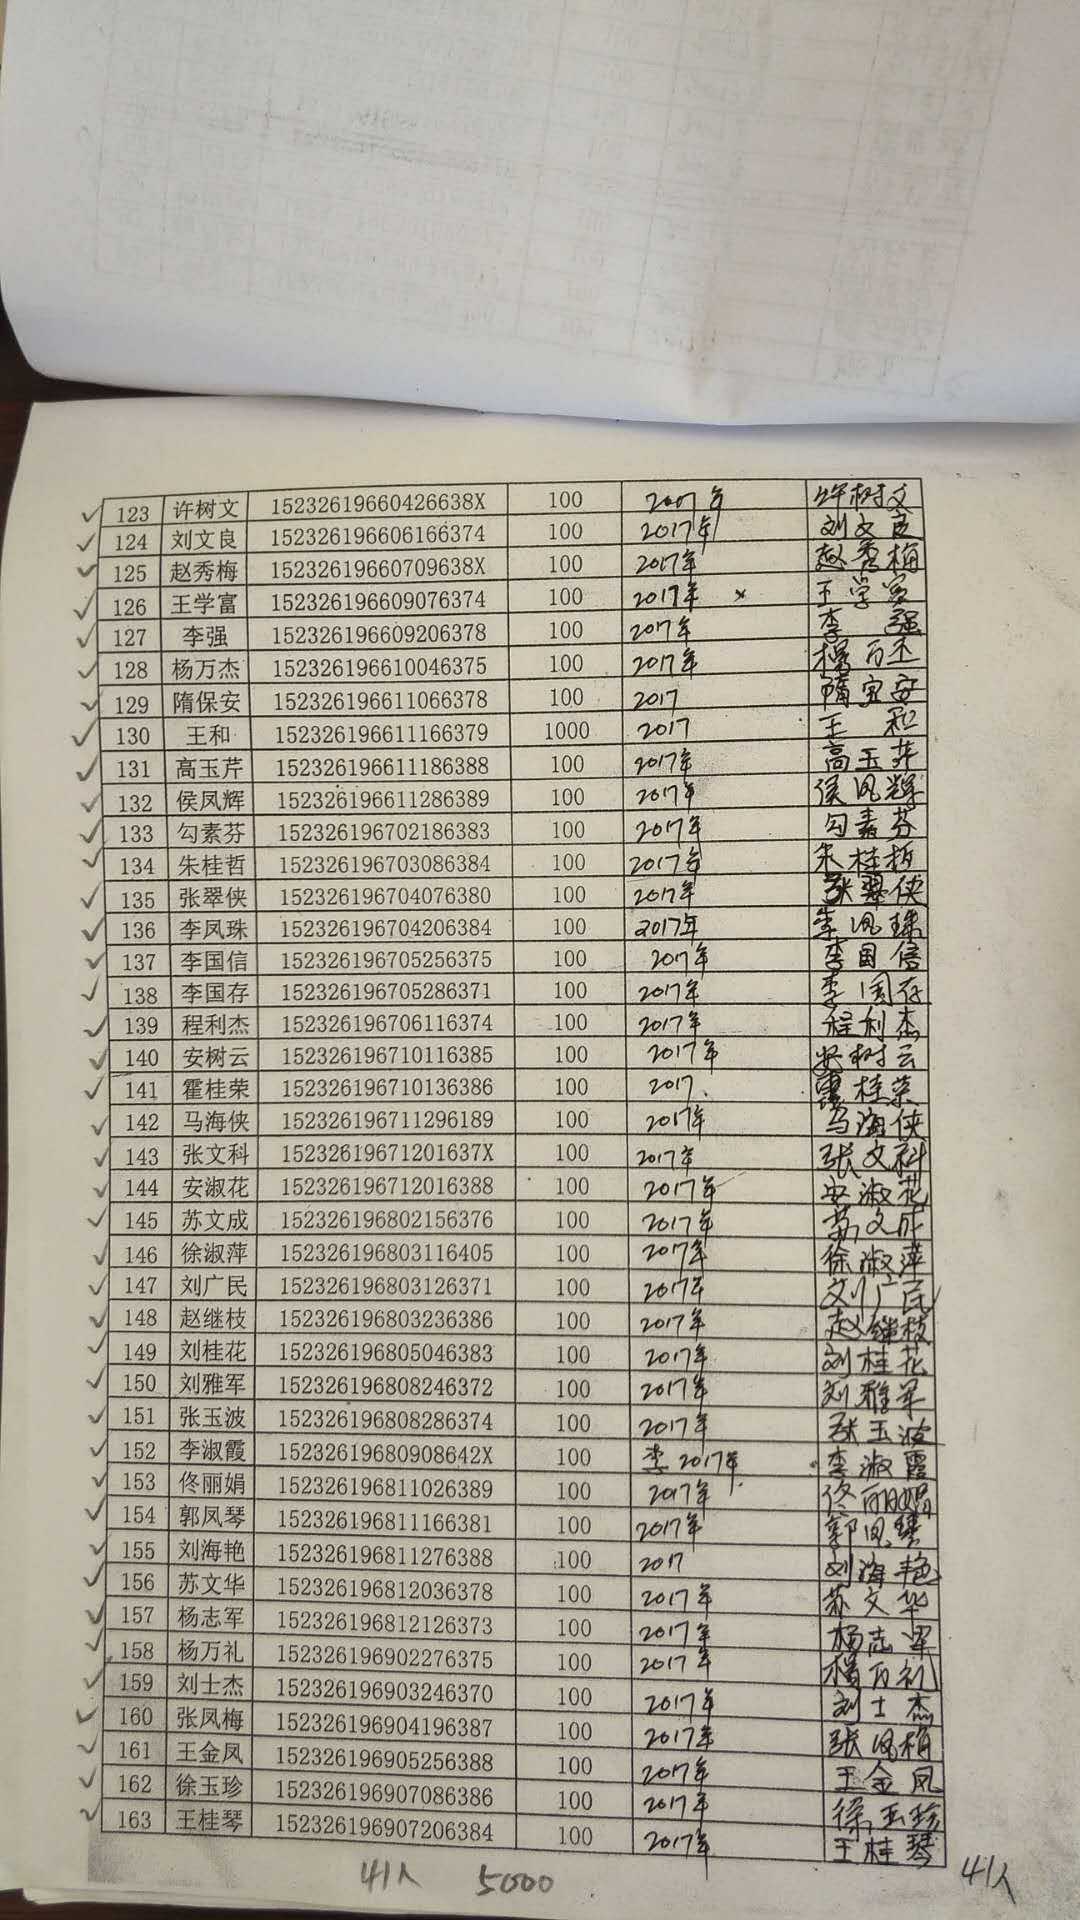 123 许树文 15232619660426638X 100 2017年 许树文
124 刘文良 152326196606166374 100 2017年 刘文良
125 赵秀梅 15232619660709638X 100 2017年 赵秀梅
126 王学富 152326196609076374 100 2017年 × 王学富
127 李强 152326196609206378 100 2017年 李强
128 杨万杰 152326196610046375 100 2017年 杨万杰
129 隋保安 152326196611066378 100 2017 隋宝安
130 王和 152326196611166379 1000 2017 王和
131 高玉芹 152326196611186388 100 2017年 高玉芹
132 侯凤辉 152326196611286389 100 2017年 侯凤辉
133 勾素芬 152326196702186383 100 2017年 勾素芬
134 朱桂哲 152326196703086384 100 2017年 朱桂哲
135 张翠侠 152326196704076380 100 2017年 张翠侠
136 李凤珠 152326196704206384 100 2017年 李凤珠
137 李国信 152326196705256375 100 2017年 李国信
138 李国存 152326196705286371 100 2017年 李国存
139 程利杰 152326196706116374 100 2017年 程利杰
140 安树云 152326196710116385 100 2017年 安树云
141 霍桂荣 152326196710136386 100 2017 霍桂荣
142 马海侠 152326196711296189 100 2017年 马海侠
143 张文科 15232619671201637X 100 2017年 张文科
144 安淑花 152326196712016388 100 2017年 安淑花
145 苏文成 152326196802156376 100 2017年 苏文成
146 徐淑萍 152326196803116405 100 2017年 徐淑萍
147 刘广民 152326196803126371 100 2017年 刘广民
148 赵继枝 152326196803236386 100 2017年 赵继枝
149 刘桂花 152326196805046383 100 2017年 刘桂花
150 刘雅军 152326196808246372 100 2017年 刘雅军
151 张玉波 152326196808286374 100 2017年 张玉波
152 李淑霞 15232619680908642X 100 李 2017年 李淑霞
153 佟丽娟 152326196811026389 100 2017年 佟丽娟
154 郭凤琴 152326196811166381 100 2017年 郭凤琴
155 刘海艳 152326196811276388 100 2017 刘海艳
156 苏文华 152326196812036378 100 2017年 苏文华
157 杨志军 152326196812126373 100 2017年 杨志军
158 杨万礼 152326196902276375 100 2017年 杨万礼
159 刘士杰 152326196903246370 100 2017年 刘士杰
160 张凤梅 152326196904196387 100 2017年 张凤梅
161 王金凤 152326196905256388 100 2017年 王金凤
162 徐玉珍 152326196907086386 100 2017年 徐玉珍
163 王桂琴 152326196907206384 100 2017年 王桂琴
41人 5000 41人